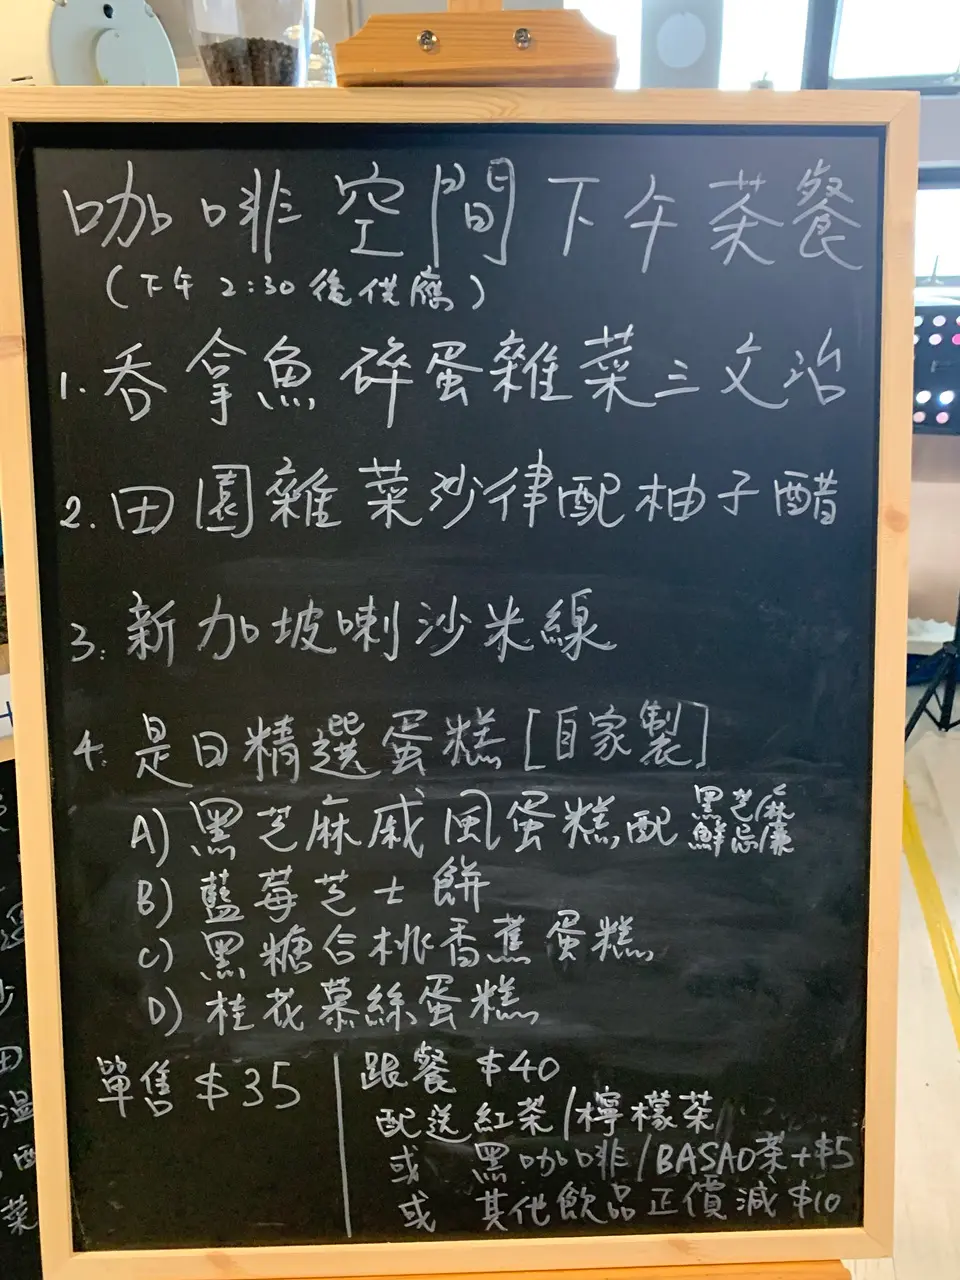 咖啡空間下午茶餐
(下午 2:30 後供應)
1. 吞拿魚碎蛋雜菜三文治
2. 田園雜菜沙律配柚子醋
3. 新加坡喇沙米線
4. 是日精選蛋糕 [自家製]
A) 黑芝麻戚風蛋糕配 黑芝麻
鮮忌廉
B) 藍莓芝士餅
C) 黑糖合桃香蕉蛋糕
D) 桂花慕絲蛋糕
單售 $35
跟餐 $40
配送紅茶/檸檬茶
或 黑咖啡/BASAO茶+$5
或 其他飲品正價減$10